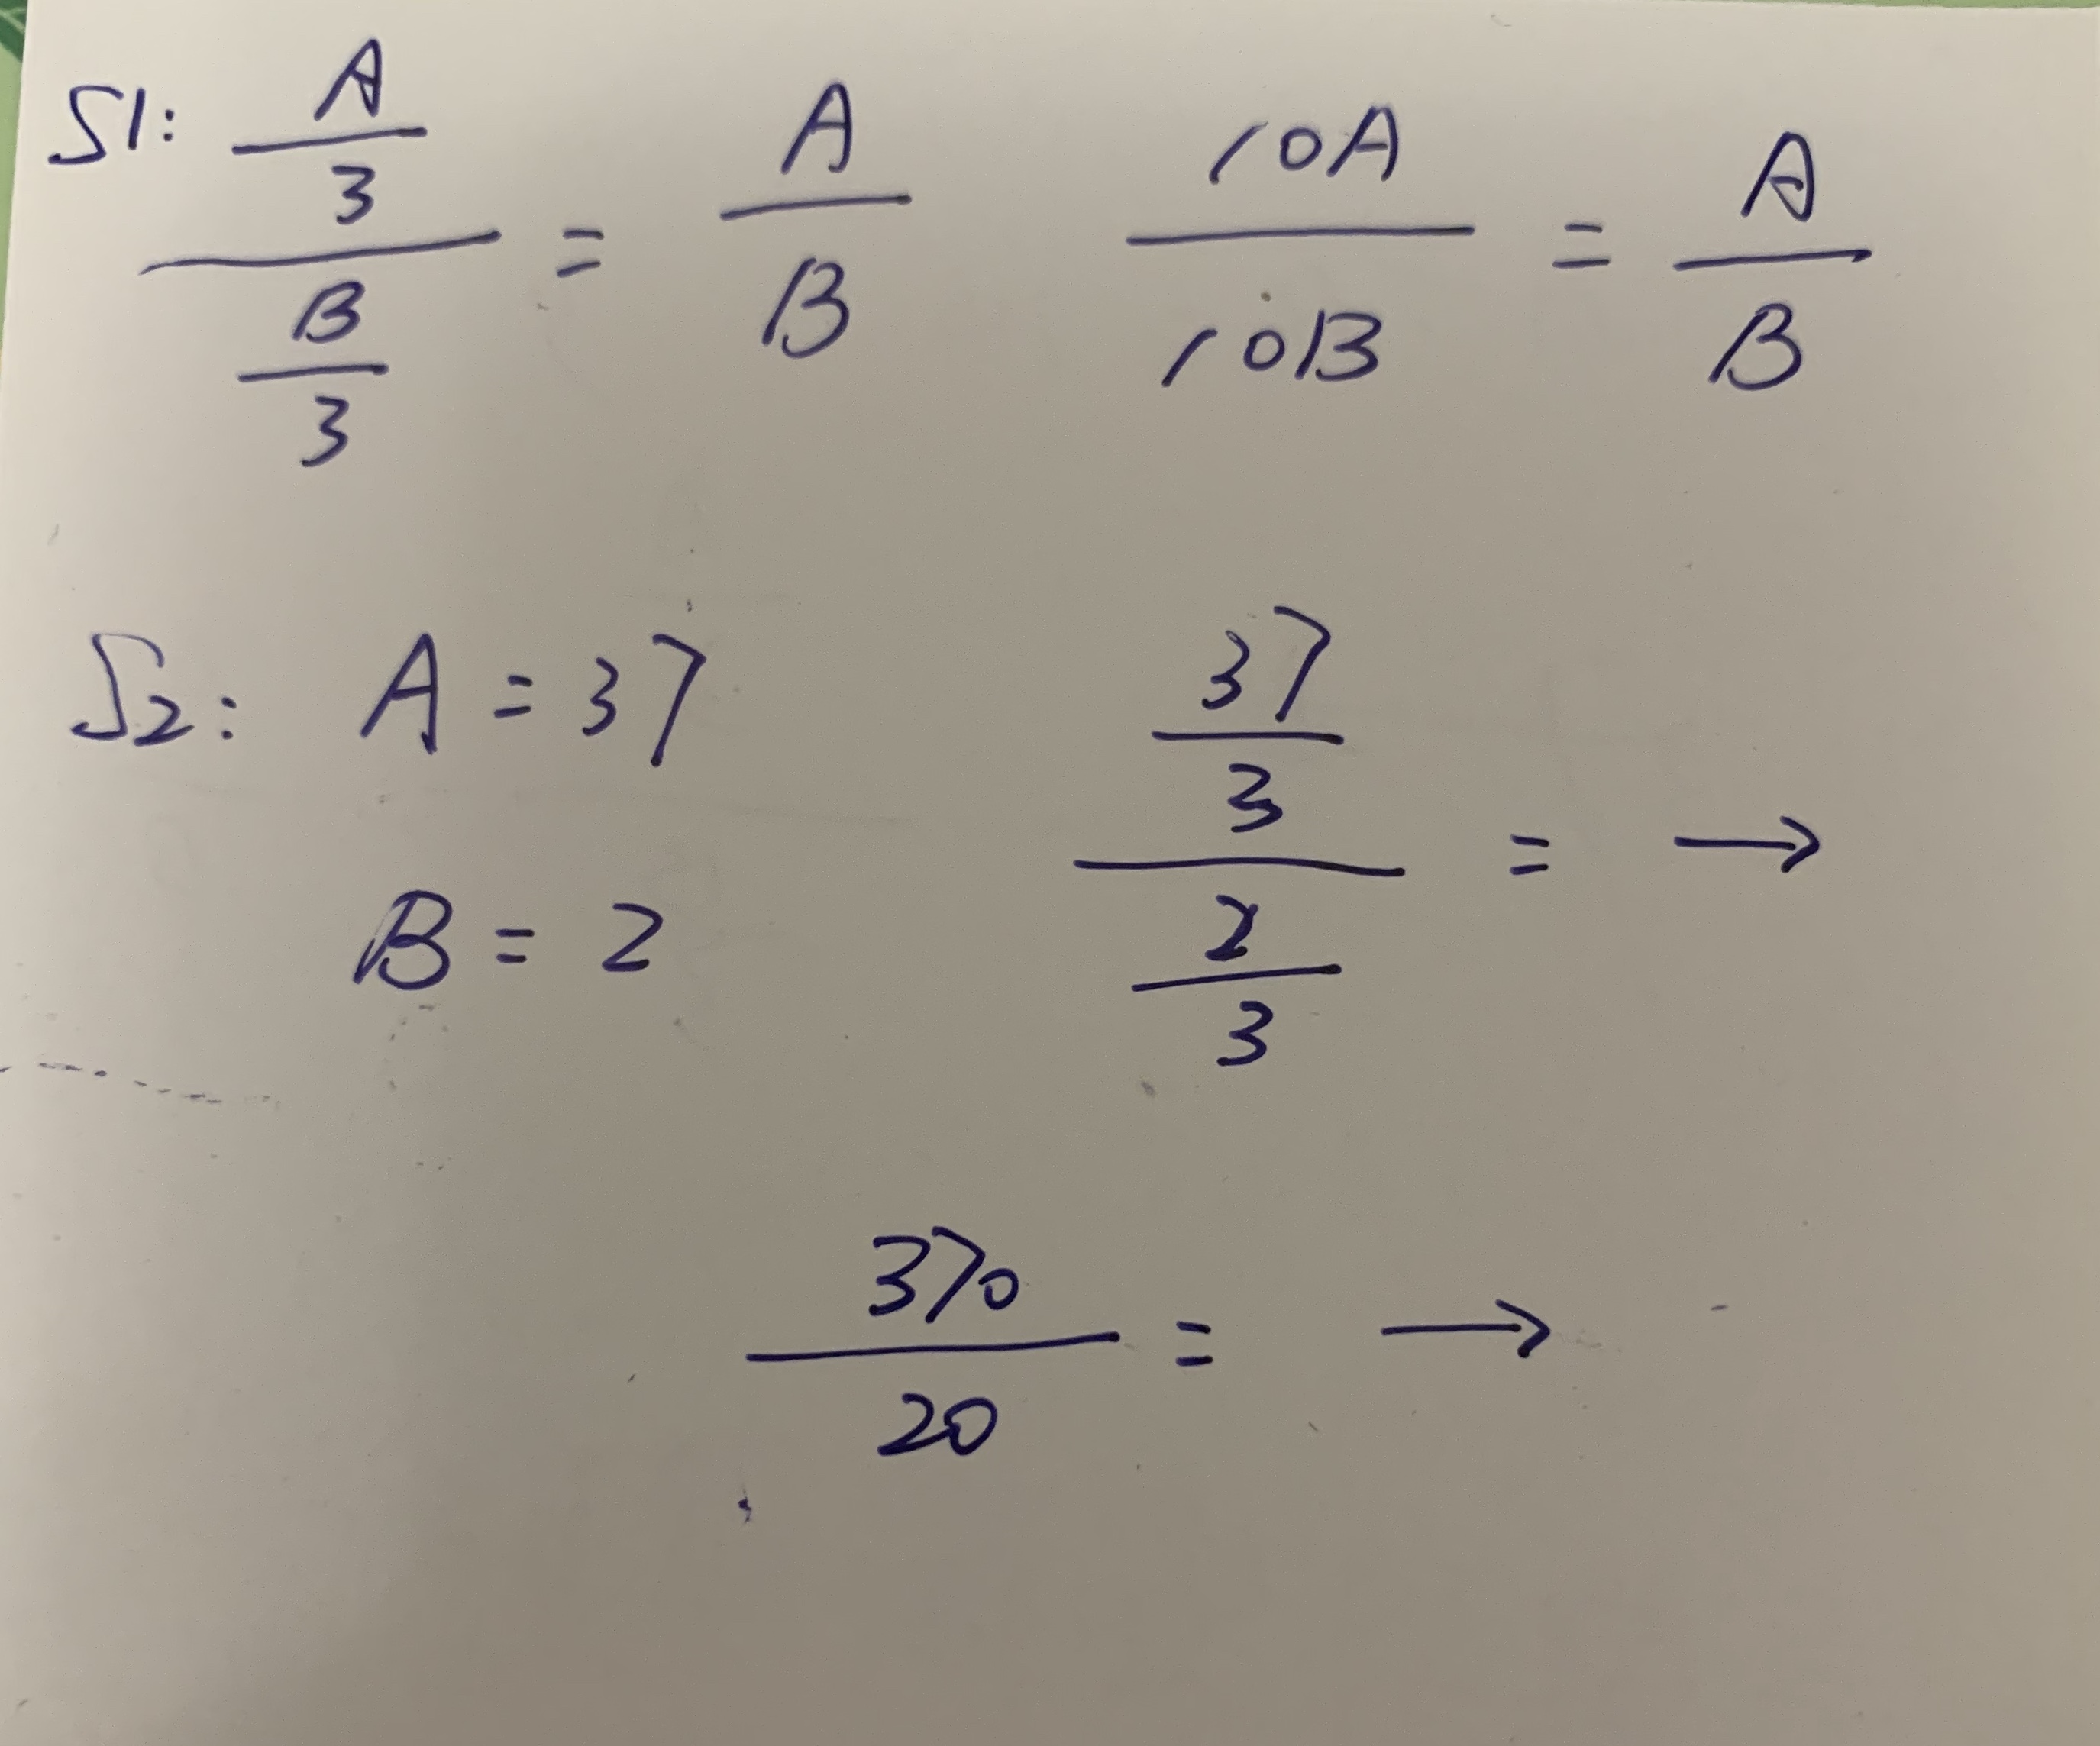 S1: A/3 / B/3 = A/B 10A/10B = A/B
S2: A = 37 37/3 / 2/3 = →
B = 2
370/20 = →